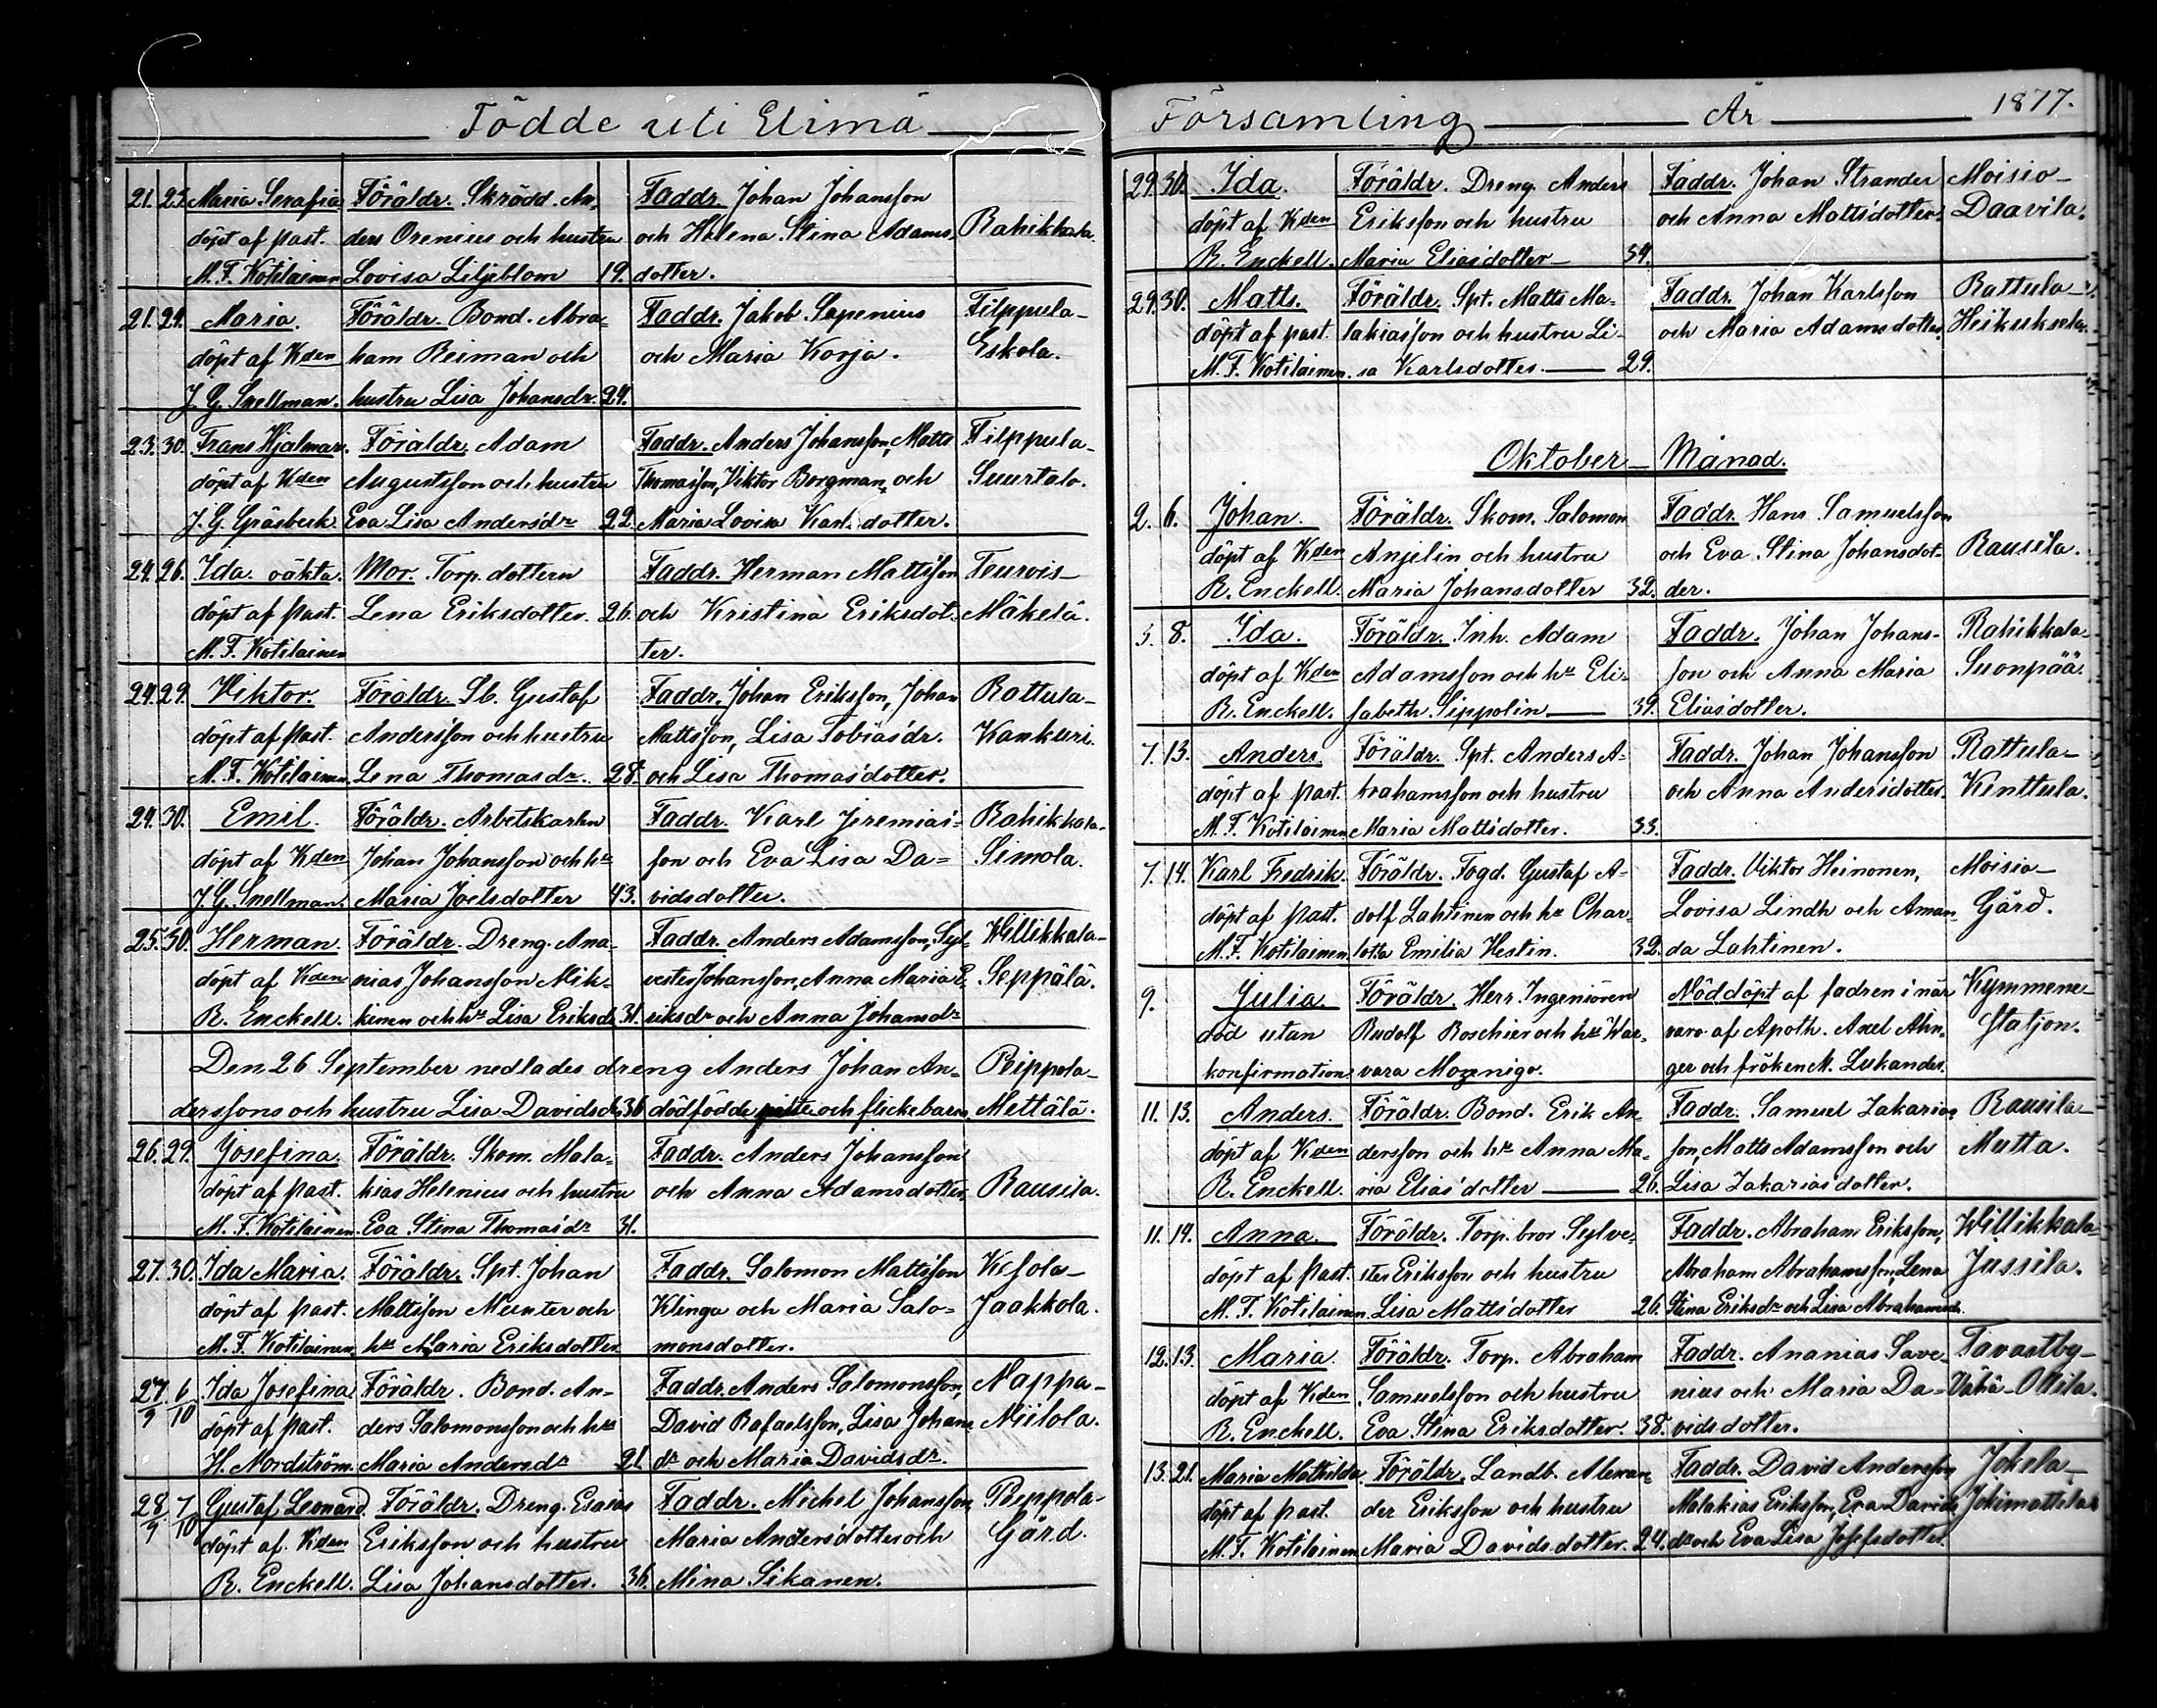 Födde uti Elimä
21. 25. Maria Serafia Föräldr. Skrädd. An- Faddr. Johan Johansson
döpt af past. ders Orenius och hustru och Helena Stina Adams- Rahikkala.
M. F. Kotilainen Lovisa Liljeblom 19. dotter.
21. 29. Maria. Föräldr. Bond. Abra- Faddr. Jakob Sepenius Filppula-
döpt af Kden ham Reiman och och Maria Korja. Eskola.
J. G. Snellman. hustru Lisa Johansdr. 24.
23. 30. Frans Hjalmar. Föräldr. Adam Faddr. Anders Johansson, Matts Filppula-
döpt af Kden Augustsson och hustru Thomasson, Viktor Borgman, och Suurtalo.
J. G. Gräsbeck. Eva Lisa Andersdr 22. Maria Lovisa Karl. dotter.
24. 26. Ida. oäkta. Mor. Torp. dottern Faddr. Herman Mattsson Teurois-
döpt af past. Lena Eriksdotter. 26. och Kristina Eriksdot- Mäkelä.
M. F. Kotilainen ter.
24. 29. Viktor. Föräldr. Sb. Gustaf Faddr. Johan Eriksson, Johan Rattula-
döpt af past. Andersson och hustru Mattsson, Lisa Tobiasdr. Kankuri.
M. F. Kotilainen. Lena Thomasdr. 28. och Lisa Thomasdotter.
24. 30. Emil. Föräldr. Arbetskarlen Faddr. Karl Jeremias- Rahikkala-
döpt af Kden Johan Johansson och hu son och Eva Lisa Da- Simola.
J. G. Snellman. Maria Joelsdotter 43. vidsdotter.
25. 30. Herman. Föräldr. Dreng. Ana- Faddr. Anders Adamsson, Syl- Willikkala-
döpt af Kden nias Johansson Mik- vester Johansson, Anna Maria E- Seppälä.
R. Enckell. kinen och hu Lisa Eriksdr 31. riksdr och Anna Johansdr
Den 26 September nedlades dreng Anders Johan An- Peippola-
derssons och hustru Lisa Davidsdr 36 dödfödde och flickebarn. Mettälä.
26. 29. Josefina. Föräldr. Skom. Mala- Faddr. Anders Johansson
döpt af past. kias Helenius och hustru och Anna Adamsdotter. Rausila.
M. F. Kotilainen. Eva Stina Thomasdr 31.
27. 30. Ida Maria. Föräldr. Spt. Johan Faddr. Salomon Mattsson Kesola-
döpt af past. Mattsson Munter och Klinga och Maria Salo- Jaakkola.
M. F. Kotilainen. hu Maria Eriksdotter monsdotter.
27/9 6/10 Ida Josefina Föräldr. Bond. An- Faddr. Anders Salomonsson, Nappa-
döpt af past. ders Salomonsson och hu David Rafaelsson, Lisa Johans- Niilola.
H. Nordström. Maria Andersdr 21. dr och Maria Davidsdr.
28/9 7/10 Gustaf Leonard. Föräldr. Dreng. Esaias Faddr. Michel Johansson, Peippola-
döpt af Kden Eriksson och hustru Maria Andersdotter och Gård.
R. Enckell. Lisa Johansdotter. 36. Mina Sikanen.
Församling År 1877.
29. 30. Ida. Föräldr. Dreng. Anders Faddr. Johan Strander Moisio-
döpt af Kden Eriksson och hustru och Anna Mattsdotter. Daavila.
R. Enckell. Maria Eliasdotter 34.
29. 30. Matts. Föräldr. Spt. Matts Ma- Faddr. Johan Karlsson Rattula-
döpt af past. lakiasson och hustru Li- och Maria Adamsdotter.
M. F. Kotilainen. sa Karlsdotter. 29.
Oktober Månad.
2. 6. Johan. Föräldr. Skom. Salomon Faddr. Hans Samuelsson
döpt af Kden Anjelin och hustru och Eva Stina Johansdot- Rausila.
R. Enckell. Maria Johansdotter 32. der.
5. 8. Ida. Föräldr. Inh. Adam Faddr. Johan Johans- Rahikkala-
döpt af Kden Adamsson och hu Eli- son och Anna Maria Suonpää.
R. Enckell. sabeth Sippolin 39. Eliasdotter.
7. 13. Anders. Föräldr. Spt. Anders A- Faddr. Johan Johansson Rattula-
döpt af past. brahamsson och hustru och Anna Andersdotter. Kenttula.
M. F. Kotilainen Maria Mattsdotter. 33.
7. 14. Karl Fredrik. Föräldr. Fogd. Gustaf A- Faddr. Viktor Heinonen, Moisio-
döpt af past. dolf Lahtinen och hu Char- Lovisa Lindh och Aman- Gård.
M. F. Kotilainen lotta Emilia Hestin. 32. da Lahtinen.
9. Julia Föräldr. Herr Ingeniören Nöddöpt af fadren i när- Kymmene-
död utan Rudolf Boschier och hu War- varo af Apoth. Axel Ahn- Statjon.
konfirmation. vara Mozenigo. ger och fröken M. Lukander.
11. 13. Anders. Föräldr. Bond. Erik An- Faddr. Samuel Zakarias- Rausila-
döpt af Kden dersson och hu Anna Ma- son, Matts Adamsson och Matta.
R. Enckell. ria Eliasdotter 26. Lisa Zakariasdotter.
11. 14. Anna. Föräldr. Torp. bror Sylve- Faddr. Abraham Eriksson, Willikkala-
döpt af past. ster Eriksson och hustru Abraham Abrahamsson, Lena Jussila.
M. F. Kotilainen. Lisa Mattsdotter 26. Stina Eriksdr och Lisa Abrahamsdr.
12. 13. Maria. Föräldr. Torp. Abraham Faddr. Ananias Save- Tavastby-
döpt af Kden Samuelsson och hustru nius och Maria Da- Vähä-Ollila.
R. Enckell. Eva Stina Eriksdotter. 38. vidsdotter.
13. 21. Maria Mathilda Föräldr. Landb. Alexan- Faddr. David Andersson Jokela-
döpt af past. der Eriksson och hustru Malakias Eriksson, Eva Davids- Jokimattila
M. F. Kotilainen Maria Davidsdotter. 24. dr och Eva Lisa Josefsdotter.